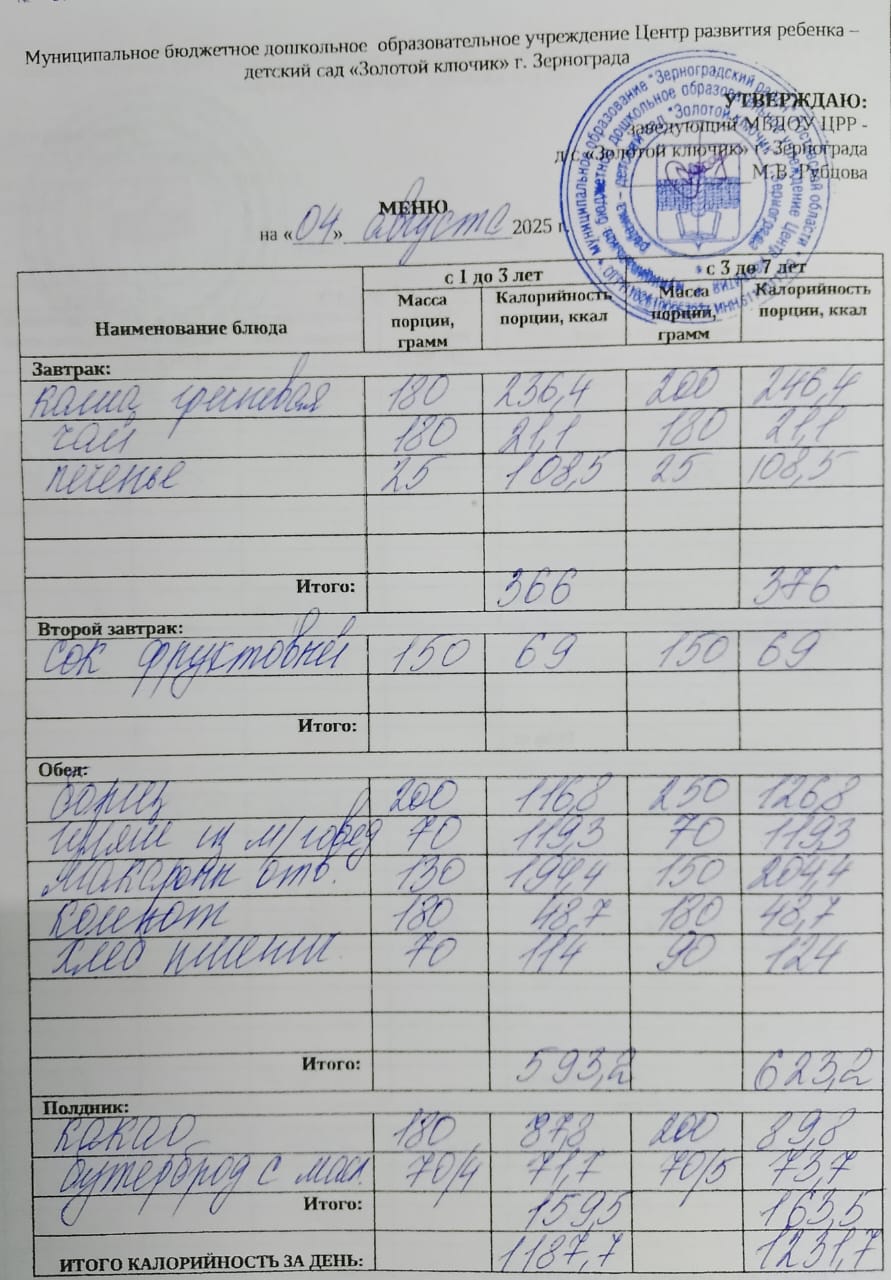 Муниципальное бюджетное дошкольное образовательное учреждение Центр развития ребенка –
детский сад «Золотой ключик» г. Зернограда
УТВЕРЖДАЮ:
заведующий МБДОУ ЦРР -
д/с «Золотой ключик» г. Зернограда
М.В. Рубцова
МЕНЮ
на «04» августа 2025 г.
Наименование блюда с 1 до 3 лет с 3 до 7 лет
Масса порции, грамм Калорийность порции, ккал Масса порции, грамм Калорийность порции, ккал
Завтрак:
каша гречневая 180 236,4 200 246,4
чай 180 21,1 180 21,1
печенье 25 108,5 25 108,5
Итого: 366 376
Второй завтрак:
сок фруктовый 150 69 150 69
Итого:
Обед:
борщ 200 116,8 250 126,8
гуляш из м/говяд 70 119,3 70 119,3
макароны отв. 130 194,4 150 204,4
компот 180 48,7 180 48,7
хлеб пшенич. 70 114 90 124
Итого: 593,2 623,2
Полдник:
какао 180 87,8 200 89,8
бутерброд с масл. 70/4 71,7 70/5 73,7
Итого: 159,5 163,5
ИТОГО КАЛОРИЙНОСТЬ ЗА ДЕНЬ: 1187,7 1231,7